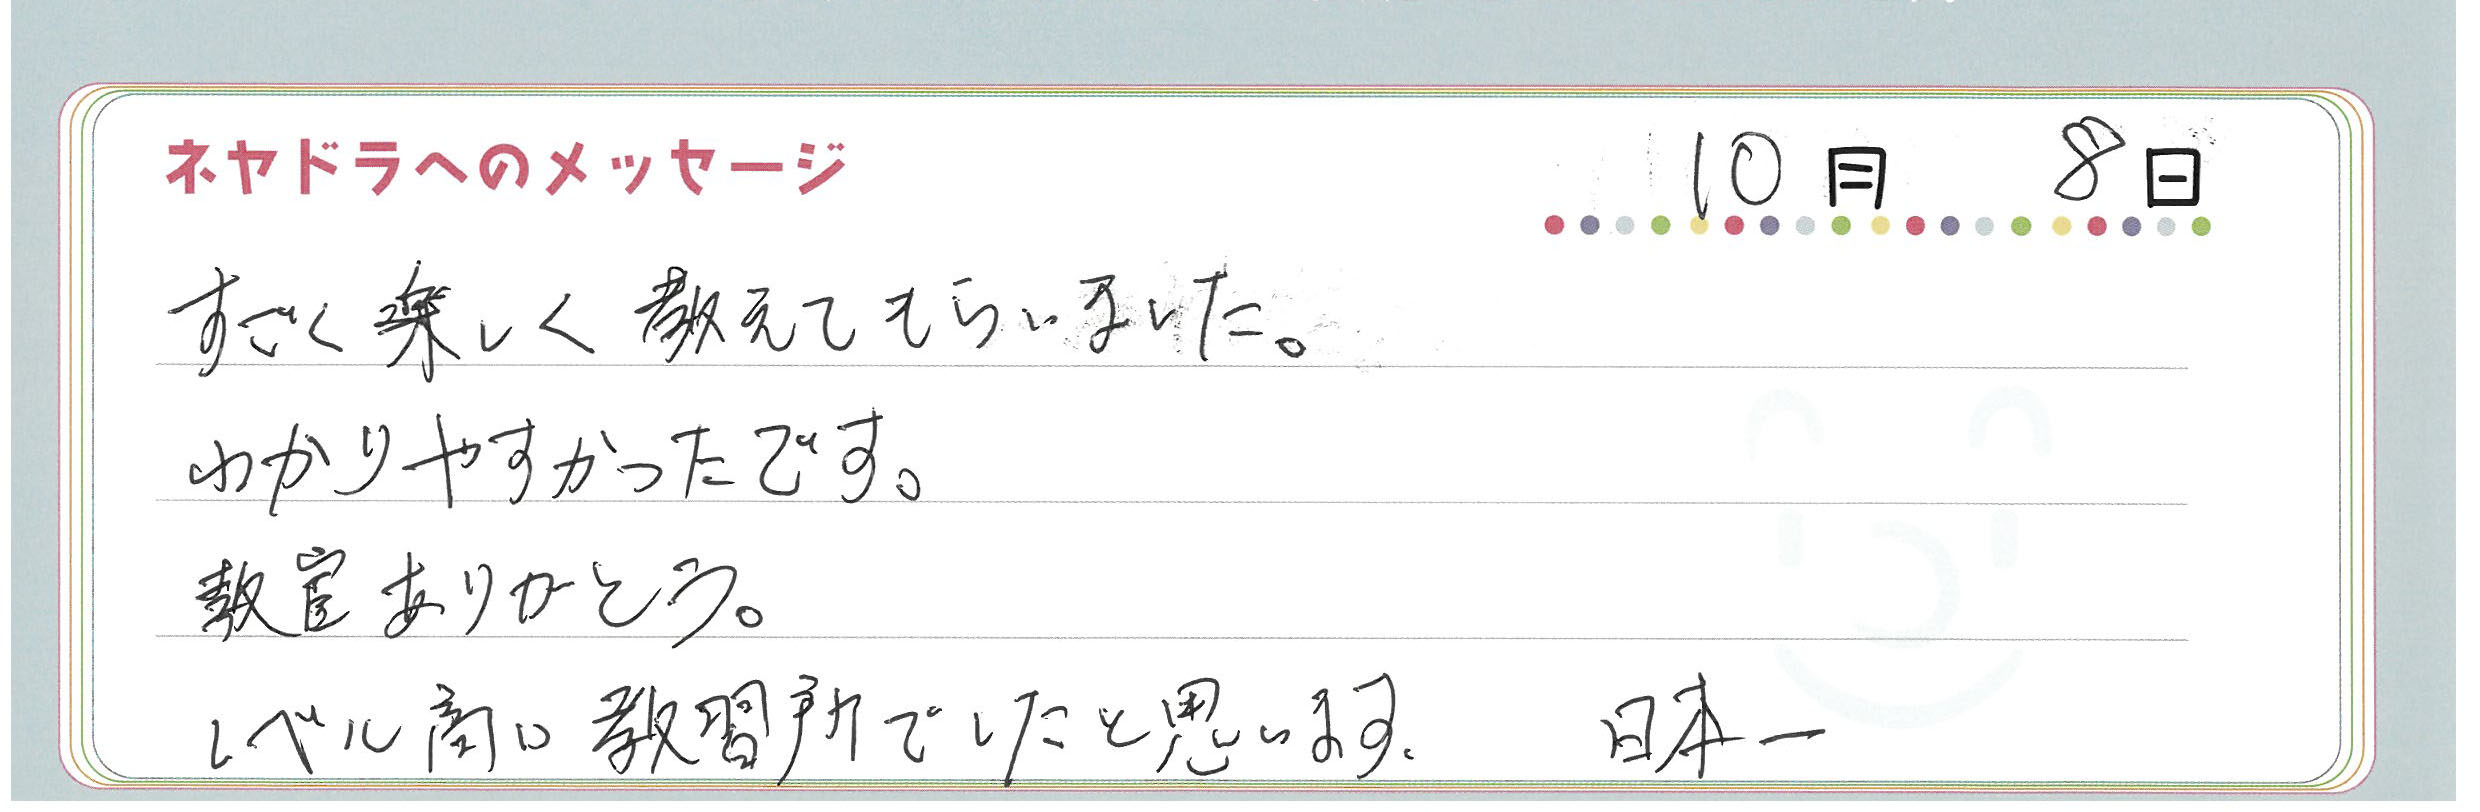 ネヤドラへのメッセージ
10月 8日
すごく楽しく教えてもらいました。
わかりやすかったです。
教官ありがとう。
レベル高い教習所でしたと思います. 日本一